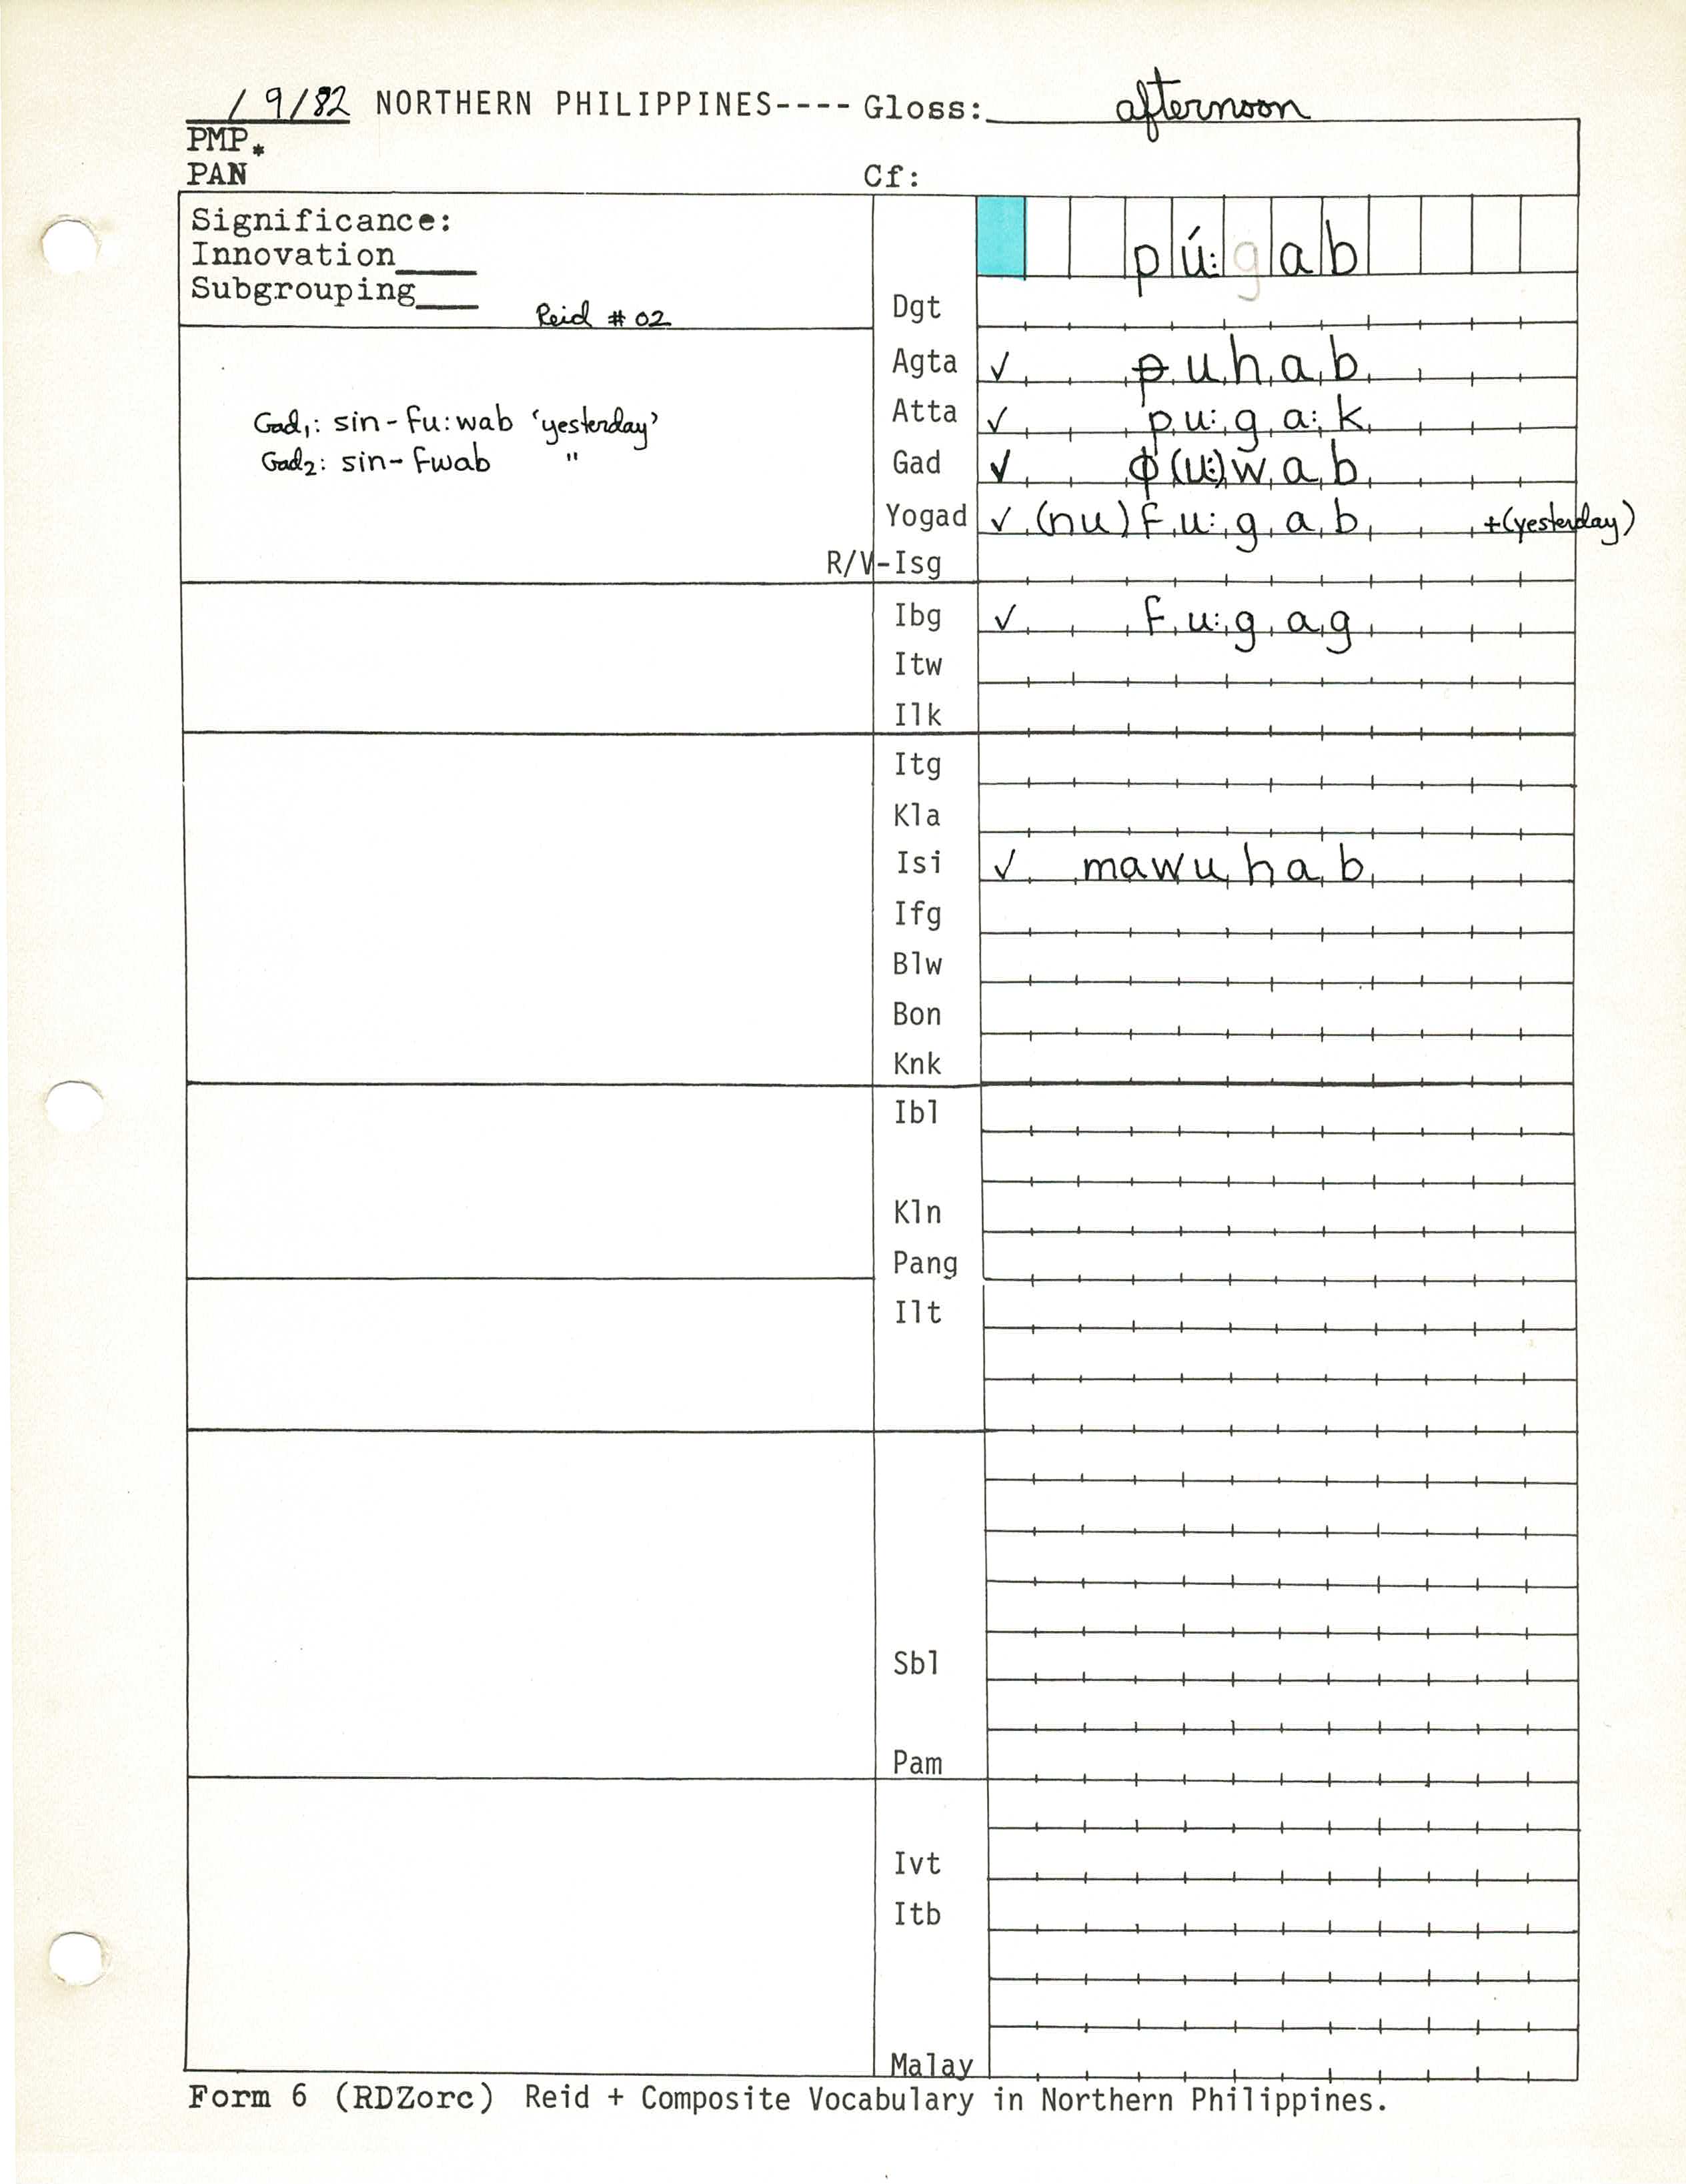 / 9/82 NORTHERN PHILIPPINES---- Gloss: afternoon
PMP*
PAN Cf:
Significance:
Innovation____
Subgrouping____
Reid # 02
pú:gab
Dgt
Agta ✓ ᵽuhab
Atta ✓ pu:ga:k
Gad ✓ ϕ(u:)wab
Gad₁: sin-fu:wab ‘yesterday’
Gad₂: sin-fwab "
Yogad ✓ (nu)fu:gab +(yesterday)
R/V-Isg
Ibg ✓ fu:gag
Itw
Ilk
Itg
Kla
Isi ✓ mawuhab
Ifg
Blw
Bon
Knk
Ibl
Kln
Pang
Ilt
Sbl
Pam
Ivt
Itb
Malay
Form 6 (RDZorc) Reid + Composite Vocabulary in Northern Philippines.